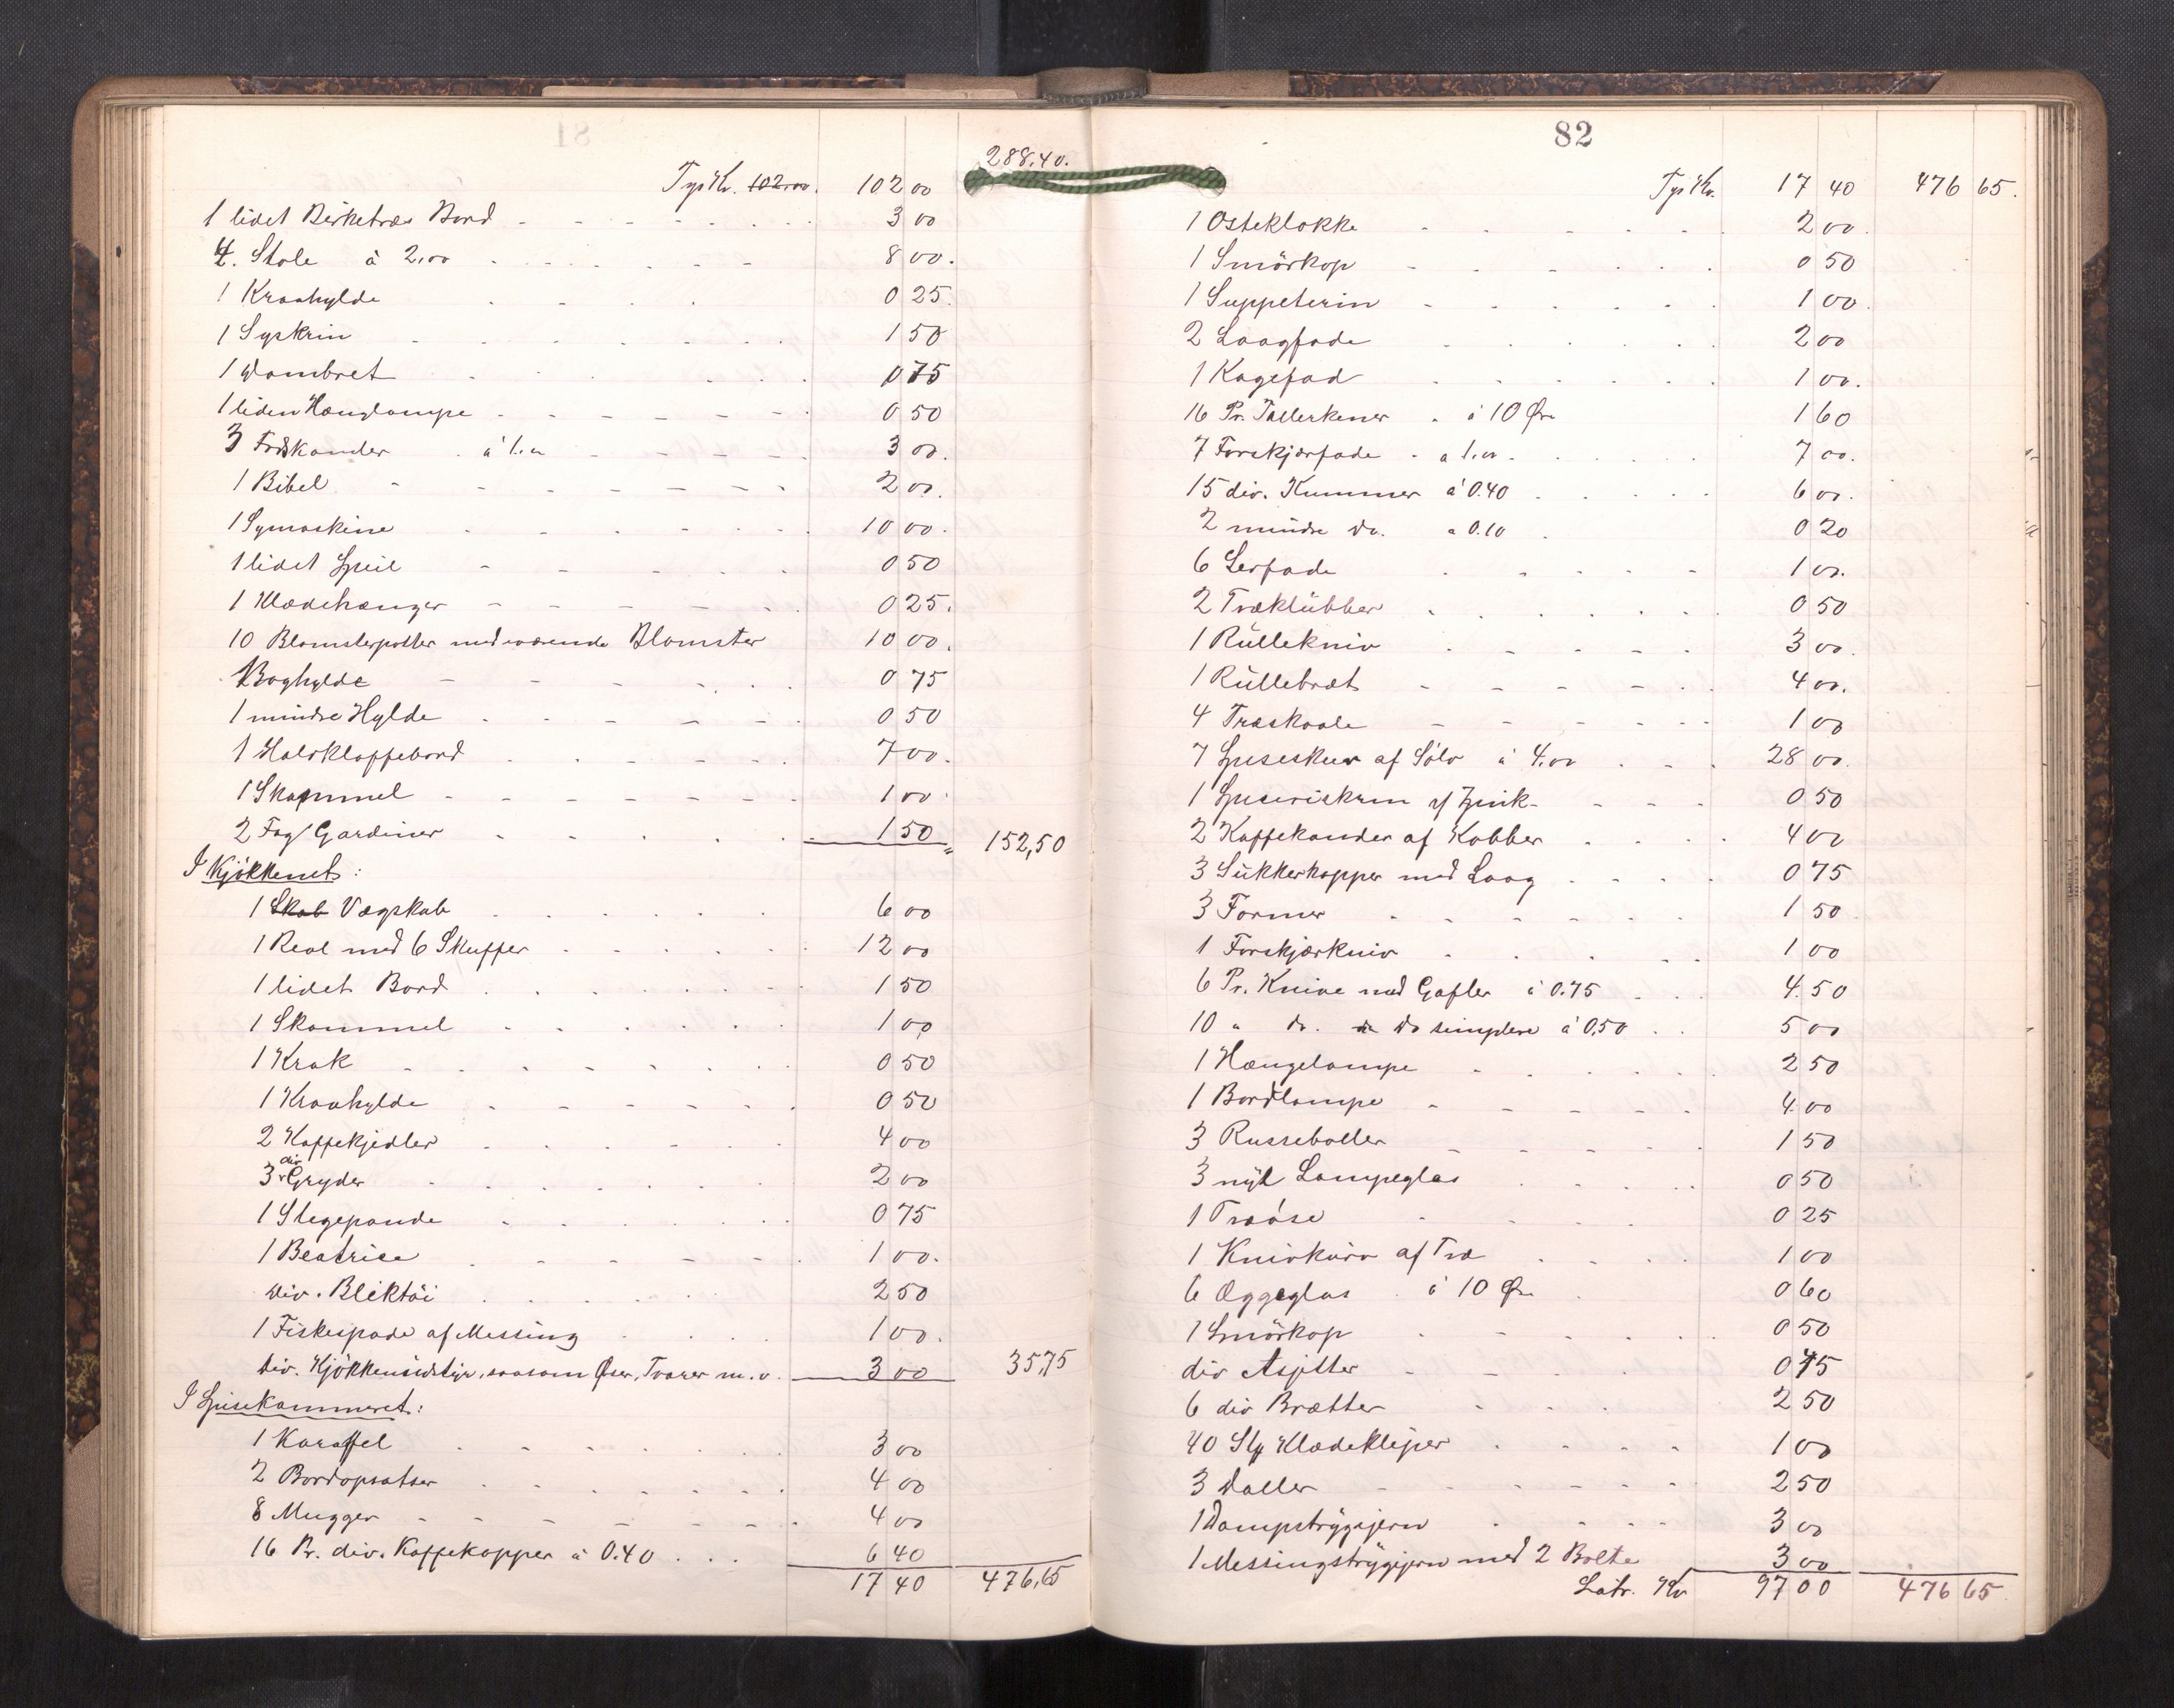 288.40.
Tvs Kr. 102.00. 102 00
1 lidet Birketræs Bord 3 00
4. Stole à 2,00 8 00.
1 Kraahylde 0 25.
1 Syskrin 1 50
1 Dambret 0 75
1 liden Hænglampe 0 50
3 kander à 1.00 3 00.
1 Bibel 2 00.
1 Symaskine 10 00.
1 lidet Speil 0 50
1 Klædehænger 0 25.
10 Blomsterpotter med værende Blomster 10 00.
1 Boghylde 0 75
1 mindre Hylde 0 50
1 Halvklappebord 7 00.
1 Skammel 1 00.
2 Fag Gardiner 1 50 152,50
I Kjøkkenet:
1 Skab Vægskab 6 00
1 Reol med 6 Skuffer 12 00
1 lidet Bord 1 50
1 Skammel 1 00
1 Krak 0 50
1 Kraahylde 0 50
2 Kaffekjedler 4 00
3 div Gryder 2 00
1 Stegepande 0 75
1 Beatrice 1 00.
Div. Bliktöi 2 50
1 Fiskespade af Messing 1 00.
Div. Kjökkenudstyr, saasom Øser, Tvarer m. v. 3 00 35,75
I Spisekammeret:
1 Karaffel 3 00
2 Bordopsatser 4 00
8 Mugger 4 00
16 Pr. div. Kaffekopper à 0.40 6 40
17 40 476,65
82
Tvs Kr. 17 40 476 65.
1 Osteklokke 2 00.
1 Smörkop 0 50
1 Suppeterin 1 00.
2 Laagfade 2 00
1 Kagefad 1 00.
16 Pr. Tallerkener à 10 Øre 1 60
7 Forskjærfade à 1.00 7 00.
15 div. Kummer à 0.40 6 00.
2 mindre Do. à 0.10 0 20
6 Lerfade 1 00.
2 Træklübber 0 50
1 Rüllekniv 3 00.
1 Rüllebræt 4 00.
4 Træskaale 1 00
7 Spiseskeer af Sölv à 4.00 28 00.
1 af Zink 0 50
2 Kaffekander af Kobber 4 00
3 Sükkerkopper med Laag 0 75
3 Former 1 50
1 Forskjærkniv 1 00
6 Pr. Knive med Gafler à 0.75 4.50
10 " do. Do simplere à 0,50 5 00
1 Hængelampe 2 50
1 Bordlampe 4 00
3 Russeboller 1 50
3 nye Lampeglas 0 50
1 Træöse 0 25
1 Knivkurv af Træ 1 00
6 Æggeglas à 10 Øre 0 60
1 Smörkop 0 50
div Asjetter 0 75
6 div Brætter 2 50
40 Stk Klædeklyper 1 00
3 Daller 2 50
1 Dampstrygejern 3 00
1 Messingstrygejern med 2 Bolte 3 00
Latr. Kr 97 00 476 65.